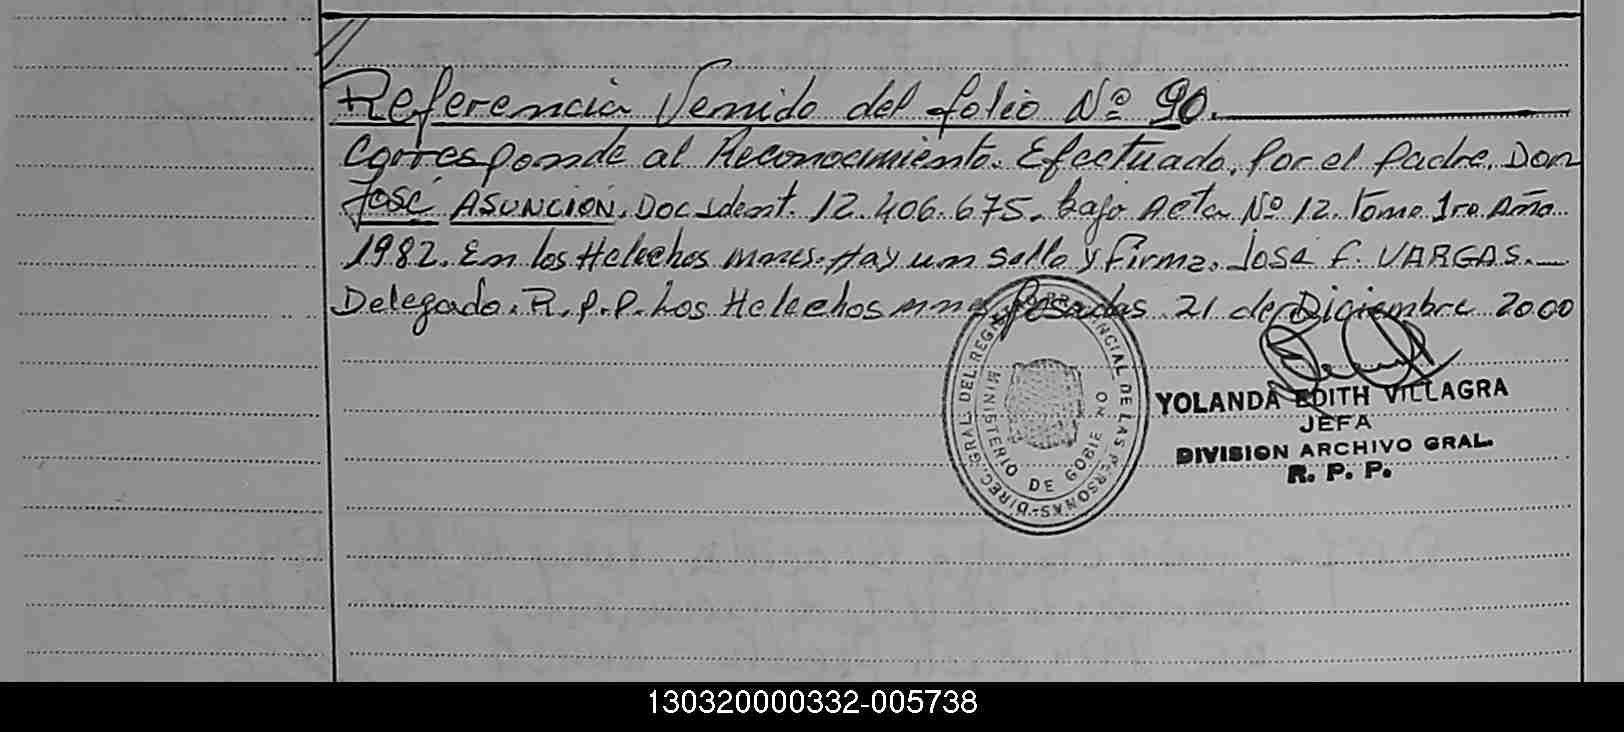 Referencia Venido del folio Nº 90.
Corresponde al Reconocimiento. Efectuado. Por el padre. Don
José ASUNCION. Doc Ident. 12.406.675. bajo Acta Nº 12. Tomo 1ro Año
1982. En los Helechos Mnes. Hay un Sello y Firma. José F. VARGAS.
Delegado. R.P.P. Los Helechos Mnes Posadas 21 de Diciembre 2000
DIREC. GRAL. DEL REGISTRO PROVINCIAL DE LAS PERSONAS
MINISTERIO DE GOBIERNO
YOLANDA EDITH VILLAGRA
JEFA
DIVISION ARCHIVO GRAL.
R. P. P.
130320000332-005738